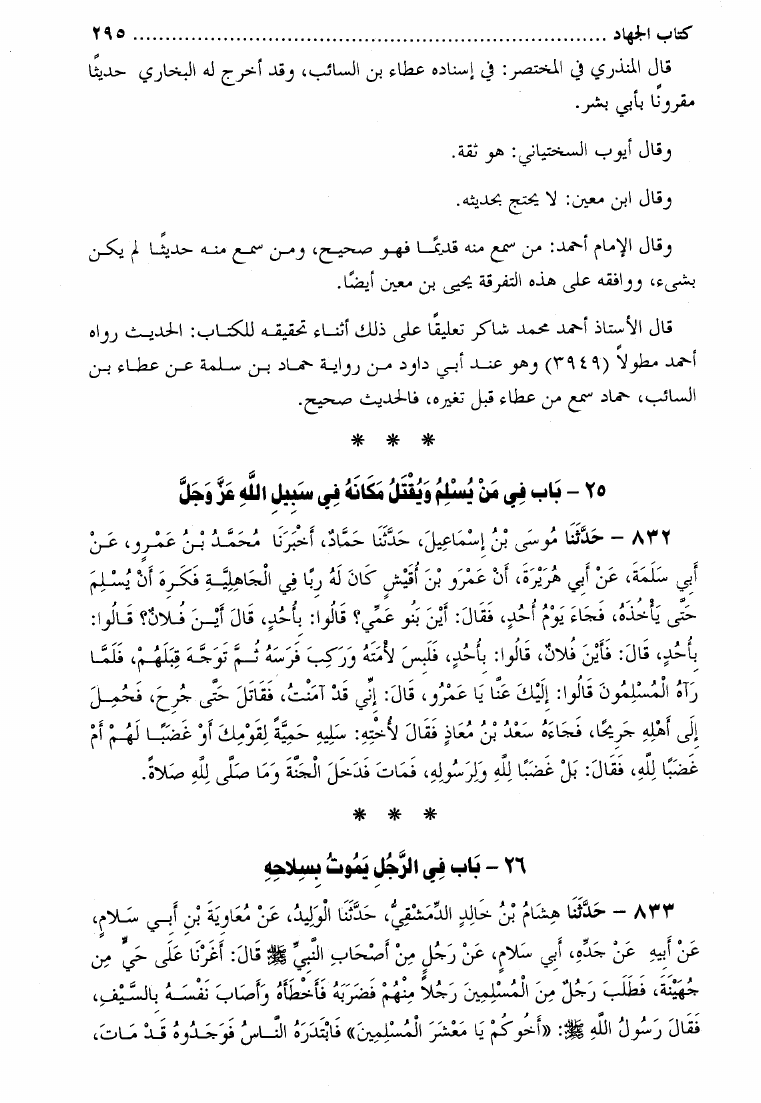 كتاب الجهاد ................................................................ ٢٩٥
قال المنذري في المختصر: في إسناده عطاء بن السائب، وقد أخرج له البخاري حديثًا
مقرونًا بأبي بشر.
وقال أيوب السختياني: هو ثقة.
وقال ابن معين: لا يحتج بحديثه.
وقال الإمام أحمد: من سمع منه قديمًا فهو صحيح، ومن سمع منه حديثًا لم يكن
بشىء، ووافقه على هذه التفرقة يحيى بن معين أيضًا.
قال الأستاذ أحمد محمد شاكر تعليقًا على ذلك أثناء تحقيقه للكتاب: الحديث رواه
أحمد مطولاً (٣٩٤٩) وهو عند أبي داود من رواية حماد بن سلمة عن عطاء بن
السائب، حماد سمع من عطاء قبل تغيره، فالحديث صحيح.
* * *
٢٥ - بَاب فِي مَنْ يُسْلِمُ وَيُقْتَلُ مَكَانَهُ فِي سَبِيلِ اللَّهِ عَزَّ وَجَلَّ
٨٣٢ - حَدَّثَنَا مُوسَى بْنُ إِسْمَاعِيلَ، حَدَّثَنَا حَمَّادٌ، أَخْبَرَنَا مُحَمَّدُ بْنُ عَمْرٍو، عَنْ
أَبِي سَلَمَةَ، عَنْ أَبِي هُرَيْرَةَ، أَنَّ عَمْرَو بْنَ أُقَيْشٍ كَانَ لَهُ رِبًا فِي الْجَاهِلِيَّةِ فَكَرِهَ أَنْ يُسْلِمَ
حَتَّى يَأْخُذَهُ، فَجَاءَ يَوْمُ أُحُدٍ، فَقَالَ: أَيْنَ بَنُو عَمِّي؟ قَالُوا: بِأُحُدٍ، قَالَ أَيْنَ فُلانٌ؟ قَالُوا:
بِأُحُدٍ، قَالَ: فَأَيْنَ فُلانٌ، قَالُوا: بِأُحُدٍ، فَلَبِسَ لأْمَتَهُ وَرَكِبَ فَرَسَهُ ثُمَّ تَوَجَّهَ قِبَلَهُمْ، فَلَمَّا
رَآهُ الْمُسْلِمُونَ قَالُوا: إِلَيْكَ عَنَّا يَا عَمْرُو، قَالَ: إِنِّي قَدْ آمَنْتُ، فَقَاتَلَ حَتَّى جُرِحَ، فَحُمِلَ
إِلَى أَهْلِهِ جَرِيحًا، فَجَاءَهُ سَعْدُ بْنُ مُعَاذٍ فَقَالَ لأُخْتِهِ: سَلِيهِ حَمِيَّةً لِقَوْمِكَ أَوْ غَضَبًا لَهُمْ أَمْ
غَضَبًا لِلَّهِ، فَقَالَ: بَلْ غَضَبًا لِلَّهِ وَلِرَسُولِهِ، فَمَاتَ فَدَخَلَ الْجَنَّةَ وَمَا صَلَّى لِلَّهِ صَلاةً.
* * *
٢٦ - بَاب فِي الرَّجُلِ يَمُوتُ بِسِلاحِهِ
٨٣٣ - حَدَّثَنَا هِشَامُ بْنُ خَالِدٍ الدِّمَشْقِيُّ، حَدَّثَنَا الْوَلِيدُ، عَنْ مُعَاوِيَةَ بْنِ أَبِي سَلامٍ،
عَنْ أَبِيهِ عَنْ جَدِّهِ، أَبِي سَلامٍ، عَنْ رَجُلٍ مِنْ أَصْحَابِ النَّبِيِّ ﷺ قَالَ: أَغَرْنَا عَلَى حَيٍّ مِن
جُهَيْنَةَ، فَطَلَبَ رَجُلٌ مِنَ الْمُسْلِمِينَ رَجُلاً مِنْهُمْ فَضَرَبَهُ فَأَخْطَأَهُ وَأَصَابَ نَفْسَهُ بِالسَّيْفِ،
فَقَالَ رَسُولُ اللَّهِ ﷺ: «أَخُوكُمْ يَا مَعْشَرَ الْمُسْلِمِينَ» فَابْتَدَرَهُ النَّاسُ فَوَجَدُوهُ قَدْ مَاتَ،